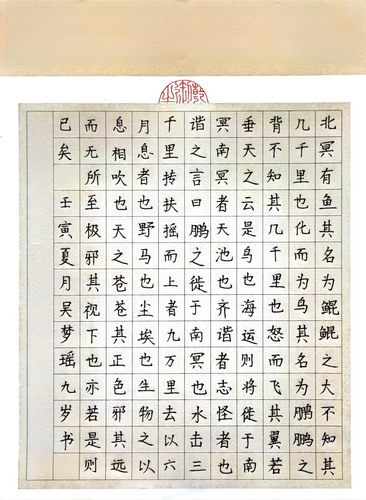 北冥有鱼其名为鲲鲲之大不知其
几千里也化而为鸟其名为鹏鹏之
背不知其几千里也怒而飞其翼若
垂天之云是鸟也海运则将徙于南
冥南冥者天池也齐谐者志怪者也
谐之言曰鹏之徙于南冥也水击三
千里抟扶摇而上者九万里去以六
月息者也野马也尘埃也生物之以
息相吹也天之苍苍其正色邪其远
而无所至极邪其视下也亦若是则
已矣 壬寅夏月吴梦瑶九岁书